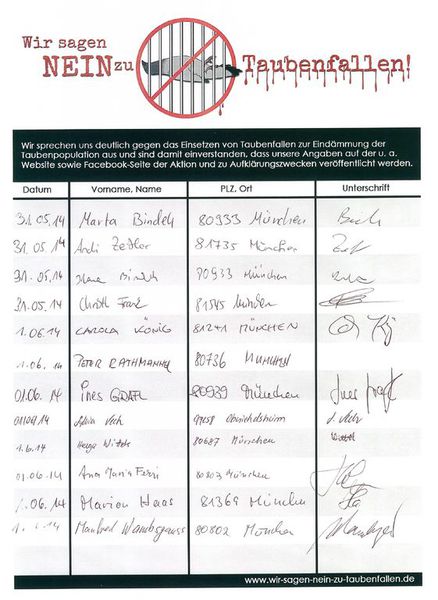 Wir sagen
NEIN zu Taubenfallen!
Wir sprechen uns deutlich gegen das Einsetzen von Taubenfallen zur Eindämmung der
Taubenpopulation aus und sind damit einverstanden, dass unsere Angaben auf der u. a.
Website sowie Facebook-Seite der Aktion und zu Aufklärungszwecken veröffentlicht werden.
Datum Vorname, Name PLZ, Ort Unterschrift
31.05.14 Marta 80933 München
31.05.14 Andi Zettler 81735 München
31.05.14 80933 München
31.05.14 Christl Frank 81545 München
1.06.14 CAROLA KÖNIG 81241 MÜNCHEN
1.06.14 PETER RATHMANNY 80736 MÜNCHEN
01.06.14 Ines GRAFL 80939 München
Silvia
1.6.14 Helga 80687 München
01.06.14 Ana Maria Ferri 80803 München
1.06.14 Marion Haas 81369 München
Manfred Wambsganss 80802 München
www.wir-sagen-nein-zu-taubenfallen.de